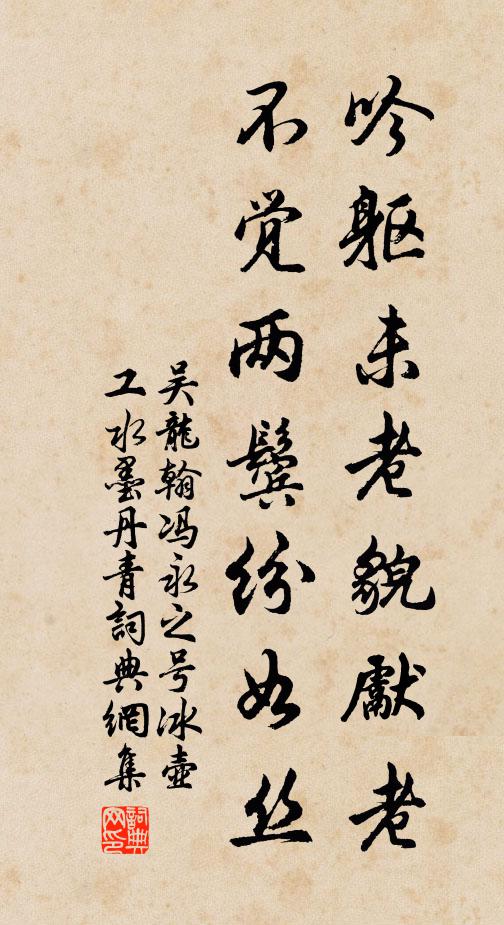 吟躯未老貌獻老
不觉两鬓纷如丝
吴龍翰冯永之号冰壶
工水墨丹青詞典網集
詞典网印